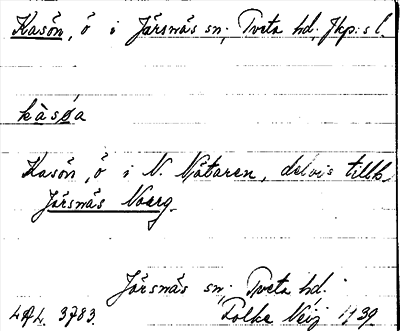 Kasön, ö i Järsnäs sn; Tveta hd; Jkp:s l.
kàsøa
Kasön, ö i N. Nätaren, delvis tillh.
Järsnäs Noerg.
Järsnäs sn; Tveta hd.
LAL. 3783. Folke 1939